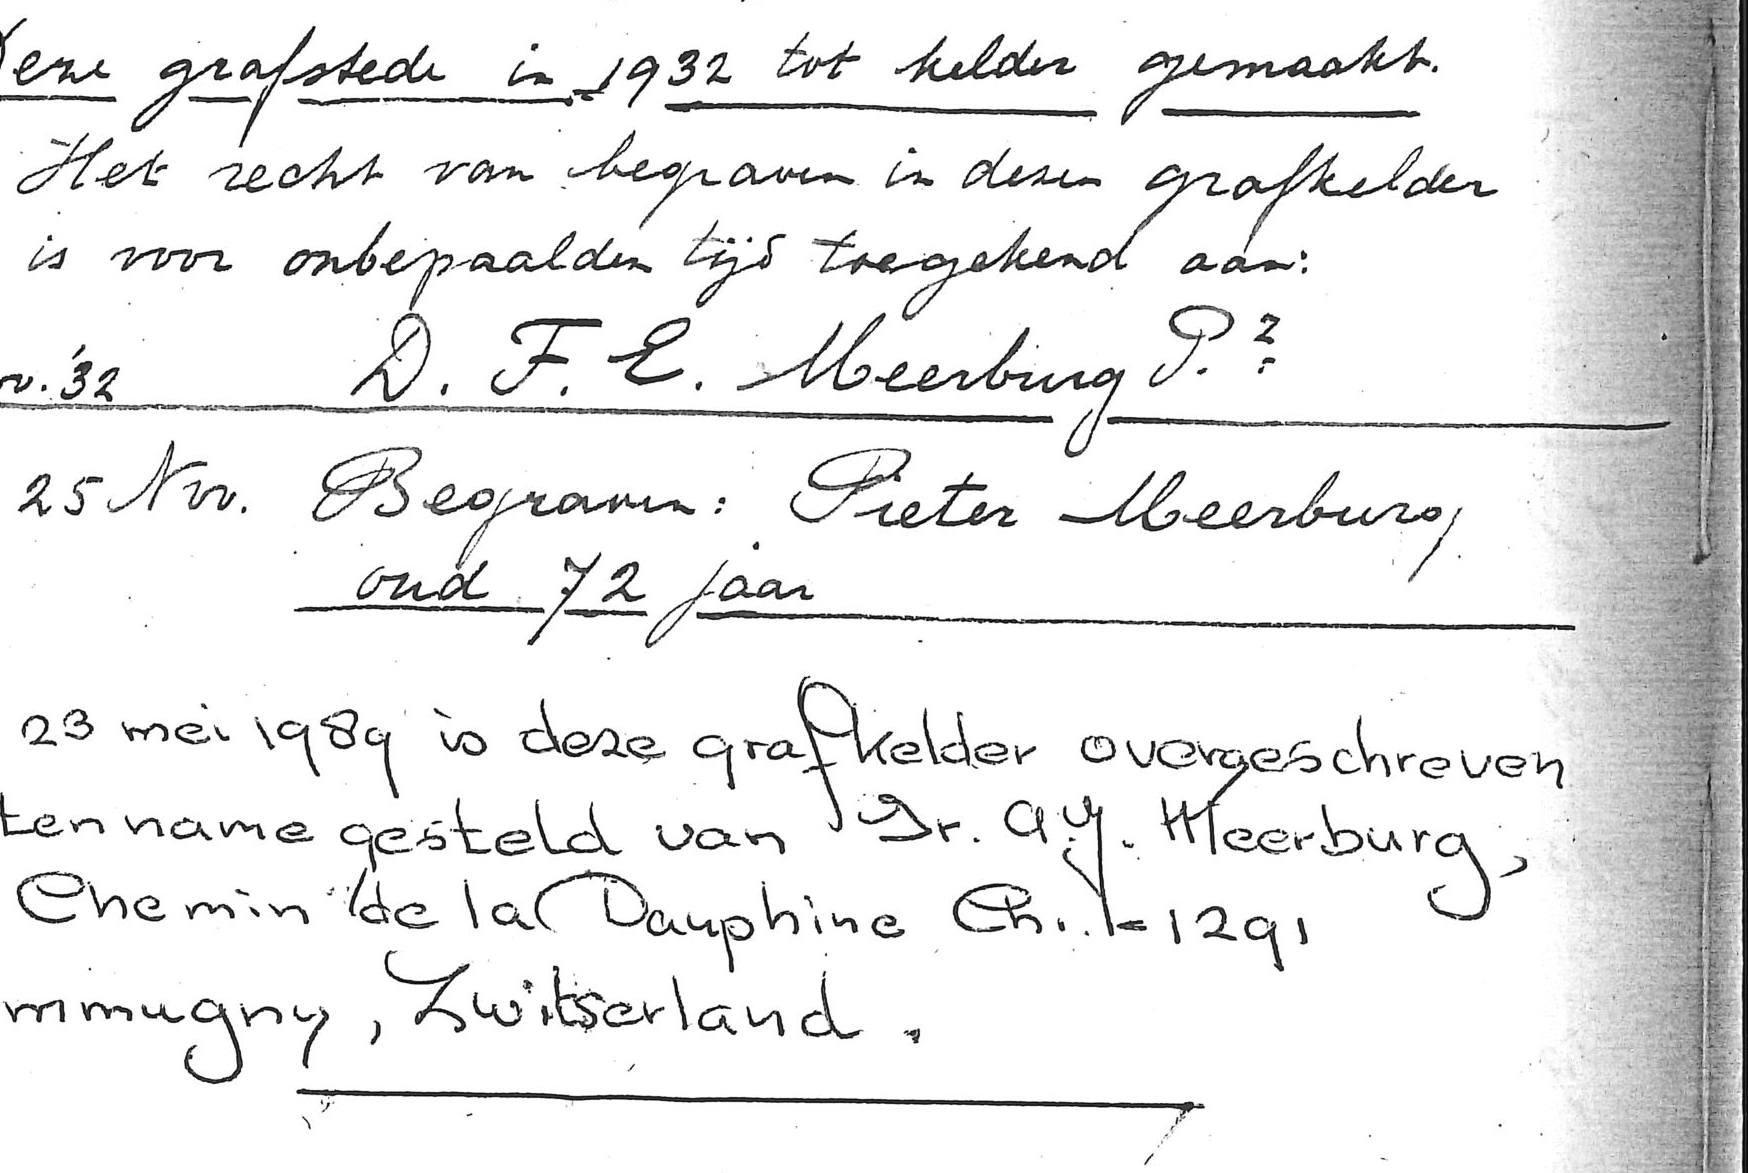 Deze grafstede in 1932 tot kelder gemaakt.
Het recht van begraven in dezen grafkelder
is voor onbepaalden tijd toegekend aan:
v. '32 D. F. E. Meerburg P.z
25 Nov. Begraven: Pieter Meerburg
oud 72 jaar
23 mei 1989 is deze grafkelder overgeschreven
ten name gesteld van Dr. A.Y. Meerburg,
Chemin de la Dauphine Ch. 1291
mmugny, Zwitserland.